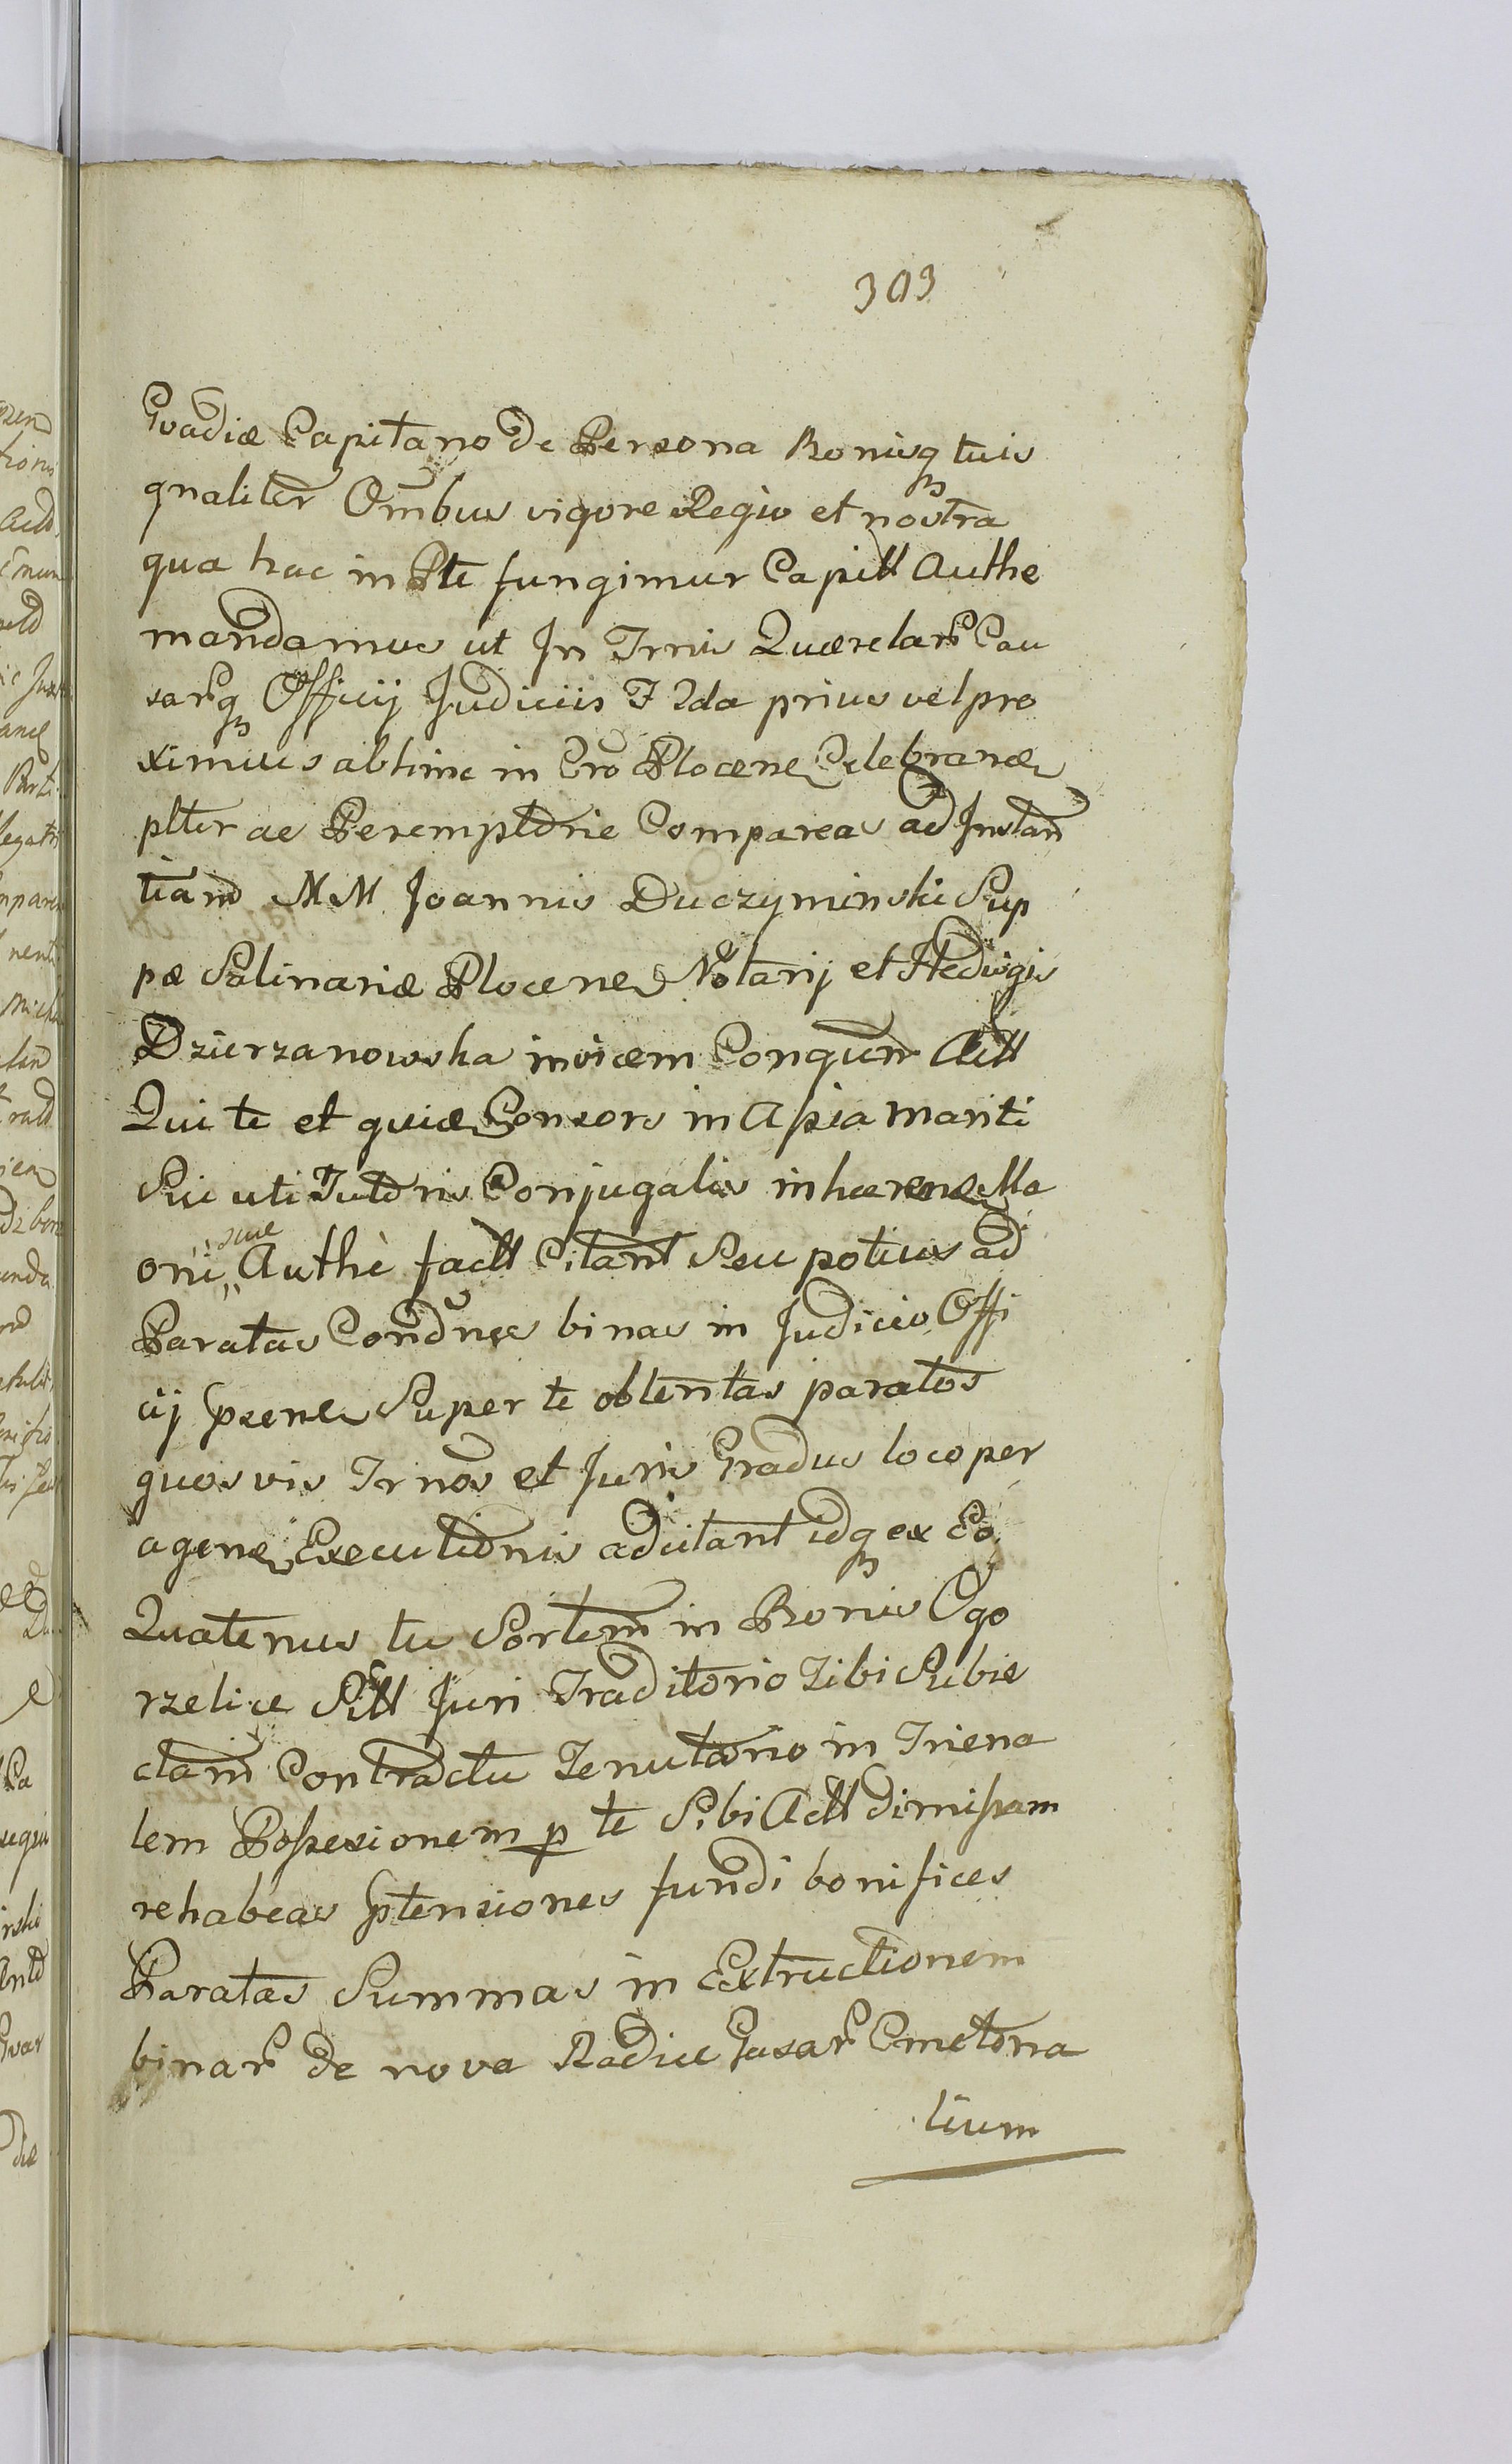 303
Gvadiæ Capitano de Persona Bonisq tuis
qualiter Ombus vigore Regio et nostra
qua hac in Pte fungimur Capitt Authe
mandamus ut In Trnis Querelarū Cau
sarq Officij Judiciis F Ida prius vel pro
ximius abhinc in Cro Plocene Celebrane
plter ac Peremptorie Compareas ad Instan
tiam M M Joannis Duczyminski Sup
pæ Salinariæ Plocene Notarij et Hedvigis
Dzierzanowska invicem Conqum Actt
Qui te et quiæ Consors in Assia Mariti
Sui uti Tutoris Conjugalis inhaerene Ma
oni sue Authe factt Citant Seu potius ad
Paratas Condnes binas in Judicio Offi
cij psene Super te obtentas paratos
quosvis Trnos et Juris Gradus loco per
agene Executionis adcitant idq ex Eo
Quatenus tu Sortem in Bonis Ogo
rzelice Sitt Juri Traditorio Tibi Subie
ctam Contractu Tenutorio in Triena
lem Possesionem p te Sibi Actt dimissam
rehabeas ptensiones fundi bonifices
Paratas Summas in Extructionem
binar de nova Radice Casar Cmetona
lium